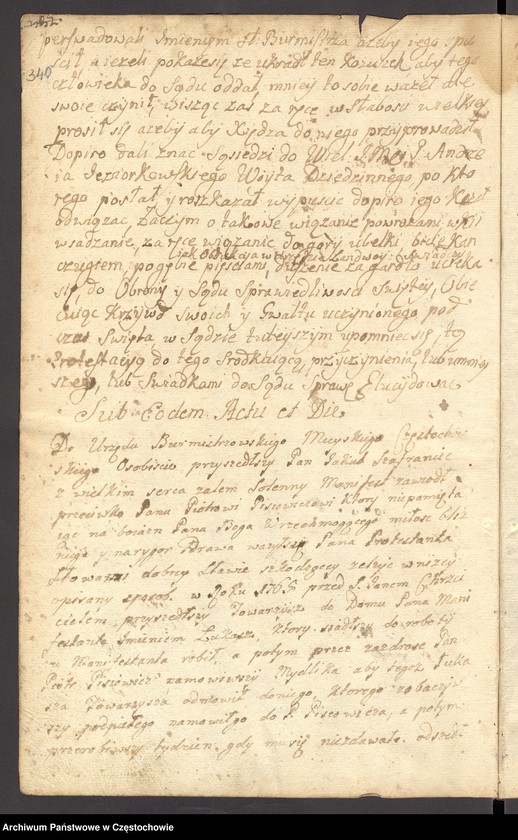 340
perswadowali Imieniym St. Burmistrza azeby iego spu
scił a iezeli pokazesię ze ukradł ten Kozuszek aby tego
człowieka do Sądu oddał, mniey to sobie wazeł ale
swoie czynił, Wisząc zas za ręce w słabosci wielkiey
prosił się azeby aby Xiędza do niego przyprowadził
Dopiro dali znac Sąsiedzi do Wiel. Jmci P. Andrze
ia Jeziorkowskiego Woyta Dziedzicznego po kto
rego posłał y roskazał wypuscic dopiro iego Kazał
odwiązac, zaczym o takowe wiązanie powrozami, w
wsadzanie, za ręce wiązanie do gory u belki, bicie Kan
czugiem, pogębie pięsciami, duszenie za gardło ucieka
się, do Obrony y Sądu Sprawiedliwosci Swiętey, Obie
cuiąc Krzywd Swoich y Gwałtu uczynionego pod
czas Swięta, w Sądzie tuteyszym upomniec się, tę
Protestacyą do tego Srodkuiącą, przyczynienia, lub umniey
szego, lub Swiadkami do Sądu Sprawę Elucydowac
Sub Eodem Actu et Die
Do Urzędu Burmistrzowskiego Mieyskiego Częstocho
skiego Osobiscie przyszedłszy Pan Jakub Szafraniec
z wielkim serca zalem Solenny Manifest zanosił
przeciwko Panu Piotrowi Pisiewiczowi Ktory niepamięta
iąc na boiazn Pana Boga Wszechmogącego miłosc bliz
niego y narygor Prawa wazyłsię Pana Protestanta
Słowami dobrey Sławie szkodzącey zelzyc w nizey
opisany sposob. w Roku 1765 przed S. Janem Chrzci
cielem, przyszedłszy Towarzysz do Domu Pana Mani
festanta Imieniem Łukasz, Ktory siadłszy do roboty
u Manifestanta robił, a potym przez zazdrosc Pan
Piotr Pisiewicz namowiwszy Mydlika aby tegoz Łuka
sza Towarzysza odmowił do niego, Ktorego zobaczy
wszy podpiłego namowiłgo do P. Pisiewicza, a potym
przerobiwszy tydzien. gdy musię niezdawało. odszedł
Archiwum Państwowe w Częstochowie